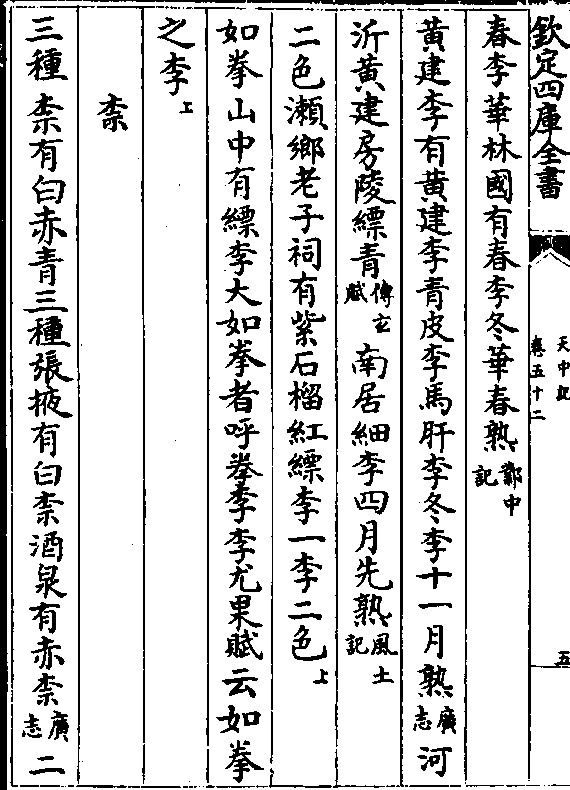 欽定四庫全書
天中記
卷五十二
五
春李華林國有春李冬華春熟鄴中記
黄建李有黄建李青皮李馬肝李冬李十一月熟廣志河
沂黄建房陵縹青傅玄賦南居細李四月先熟風土記
二色瀨鄉老子祠有紫石榴紅縹李一李二色上
如拳山中有縹李大如拳者呼拳李李尤果賦云如拳
之李上
柰
三種柰有白赤青三種張掖有白柰酒泉有赤柰廣志二